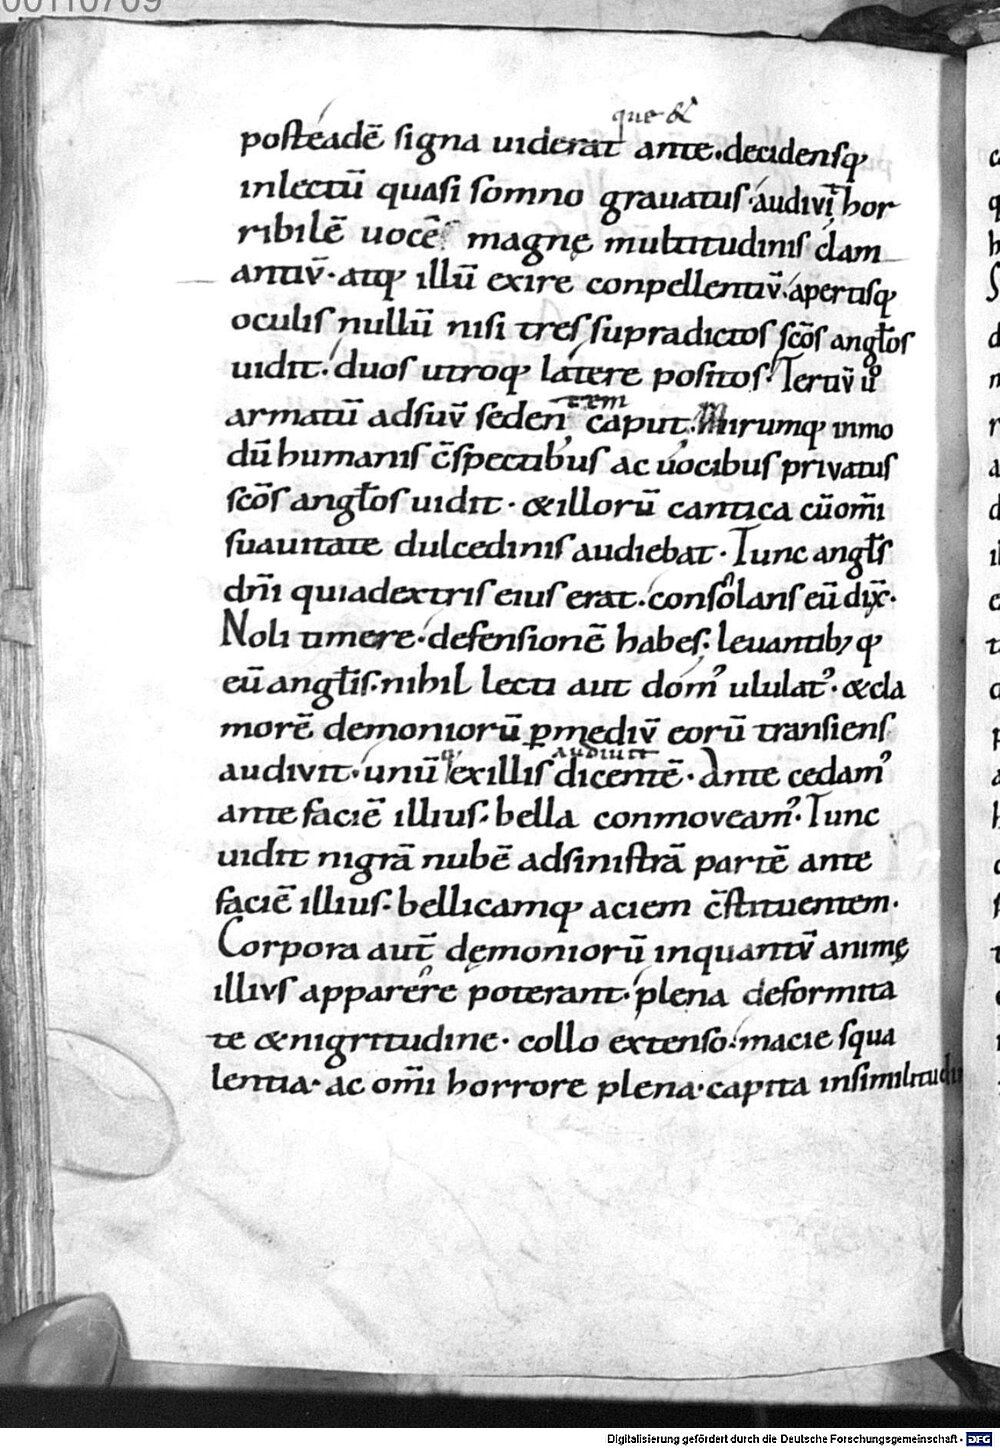 00110709
que &
posteadē signa uiderat ante. decidensq;
inlectū quasi somno grauatus. audivit hor
ribilē uocē magnę multitudinis clam
antiū. atq; illū exire conpellentiū. apertisq;
oculis nullū nisi tres supradictos sc̄os angl̄os
uidit. duos utroq; latere positos. Tertiū u͛o
tem
armatū adsuū seden caput. Mirumq; inmo
dū humanis c̄spectibus ac uocibus privatus
sc̄os angl̄os uidit. & illorū cantica cū om̄i
suauitate dulcedinis audiebat. Tunc angl̄s
dn̄i qui adextris eius erat. consolans eū dix̄.
Noli timere. defensionē habes. leuantib; q;
eū angl̄is. nihil lecti aut dom᾿ ululat᾿. & cla
morē demoniorū ꝑ mediū eorū transiens
audiuit
audivit. unū ex illis dicentē. Ante cedam᾿
ante faciē illius. bella conmoveam᾿. Tunc
uidit nigrā nubē adsinistrā partē ante
faciē illius. bellicamq; aciem c̄stituentem.
Corpora aut̄ dęmoniorū inquantū animę
illius apparere poterant. plena deformita
te & nigritudine. collo extenso. macie squa
lentia. ac om̄i horrore plena. capita insimilitudin
Digitalisierung gefördert durch die Deutsche Forschungsgemeinschaft - DFG